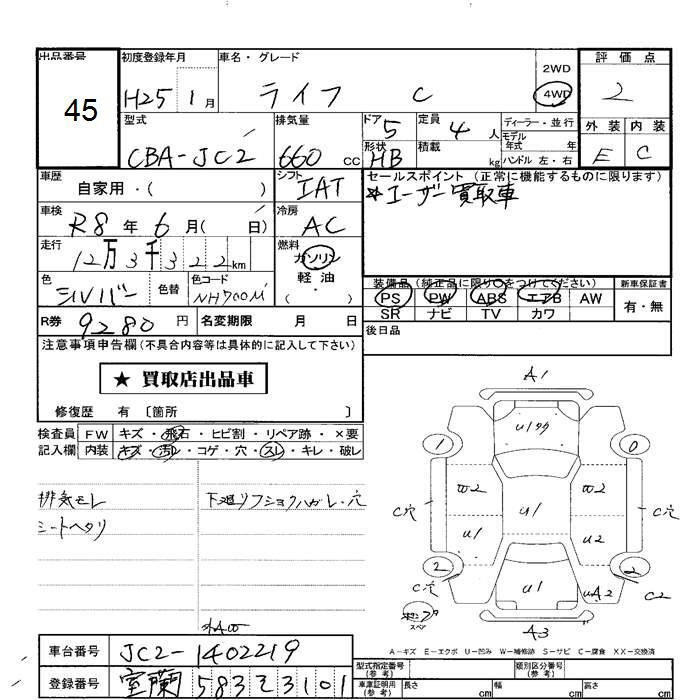 出品番号
45
初度登録年月 H25 1月
車名・グレード ライフ C
2WD
4WD
評価点 2
型式 CBA-JC2
排気量 660 cc
ドア 5
定員 4 人
形状 HB
積載 kg
ディーラー・並行
モデル年式 年
ハンドル 左・右
外装 内装
E C
車歴 自家用・( )
シフト IAT
セールスポイント (正常に機能するものに限ります)
*ユーザー買取車
車検 R8 年 6 月( 日)
冷房 AC
走行 12万3千322 km
燃料 ガソリン
軽油
( ・ )
色 シルバー 色替
色コード NH700M
装備品(純正品に限り○をつけてください) 新車保証書
PS PW ABS エアB AW
SR ナビ TV カワ
有・無
R券 9280 円 名変期限 月 日
後日品
注意事項申告欄(不具合内容等は具体的に記入して下さい)
★ 買取店出品車
修復歴 有 〔箇所 〕
検査員 FW キズ・飛石・ヒビ割・リペア跡・×要
記入欄 内装 キズ・汚レ・コゲ・穴・スレ・キレ・破レ
排気モレ
シートヘタリ
下廻リフショクハガレ・穴
A1
1 0
W2 W2
C穴 C穴
U1 U1 U2
2 2
C穴 C2
U1 UA2
スペア
A3
A-キズ E-エクボ U-凹み W-補修跡 S-サビ C-腐食 XX-交換済
車台番号 JC2-1402219
登録番号 室蘭 583 そ 3101
型式指定番号(参考) 類別区分番号(参考)
車庫証明用(参考) 長さ cm 幅 cm 高さ cm